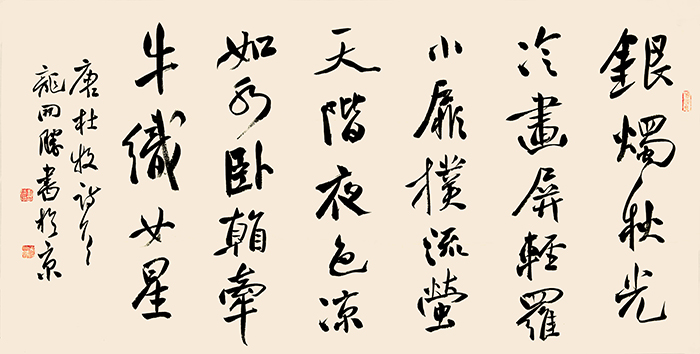 銀燭秋光
冷畫屏輕羅
小扇撲流螢
天階夜色凉
如水卧看牽
牛織女星
唐杜牧詩
龍開勝書於京